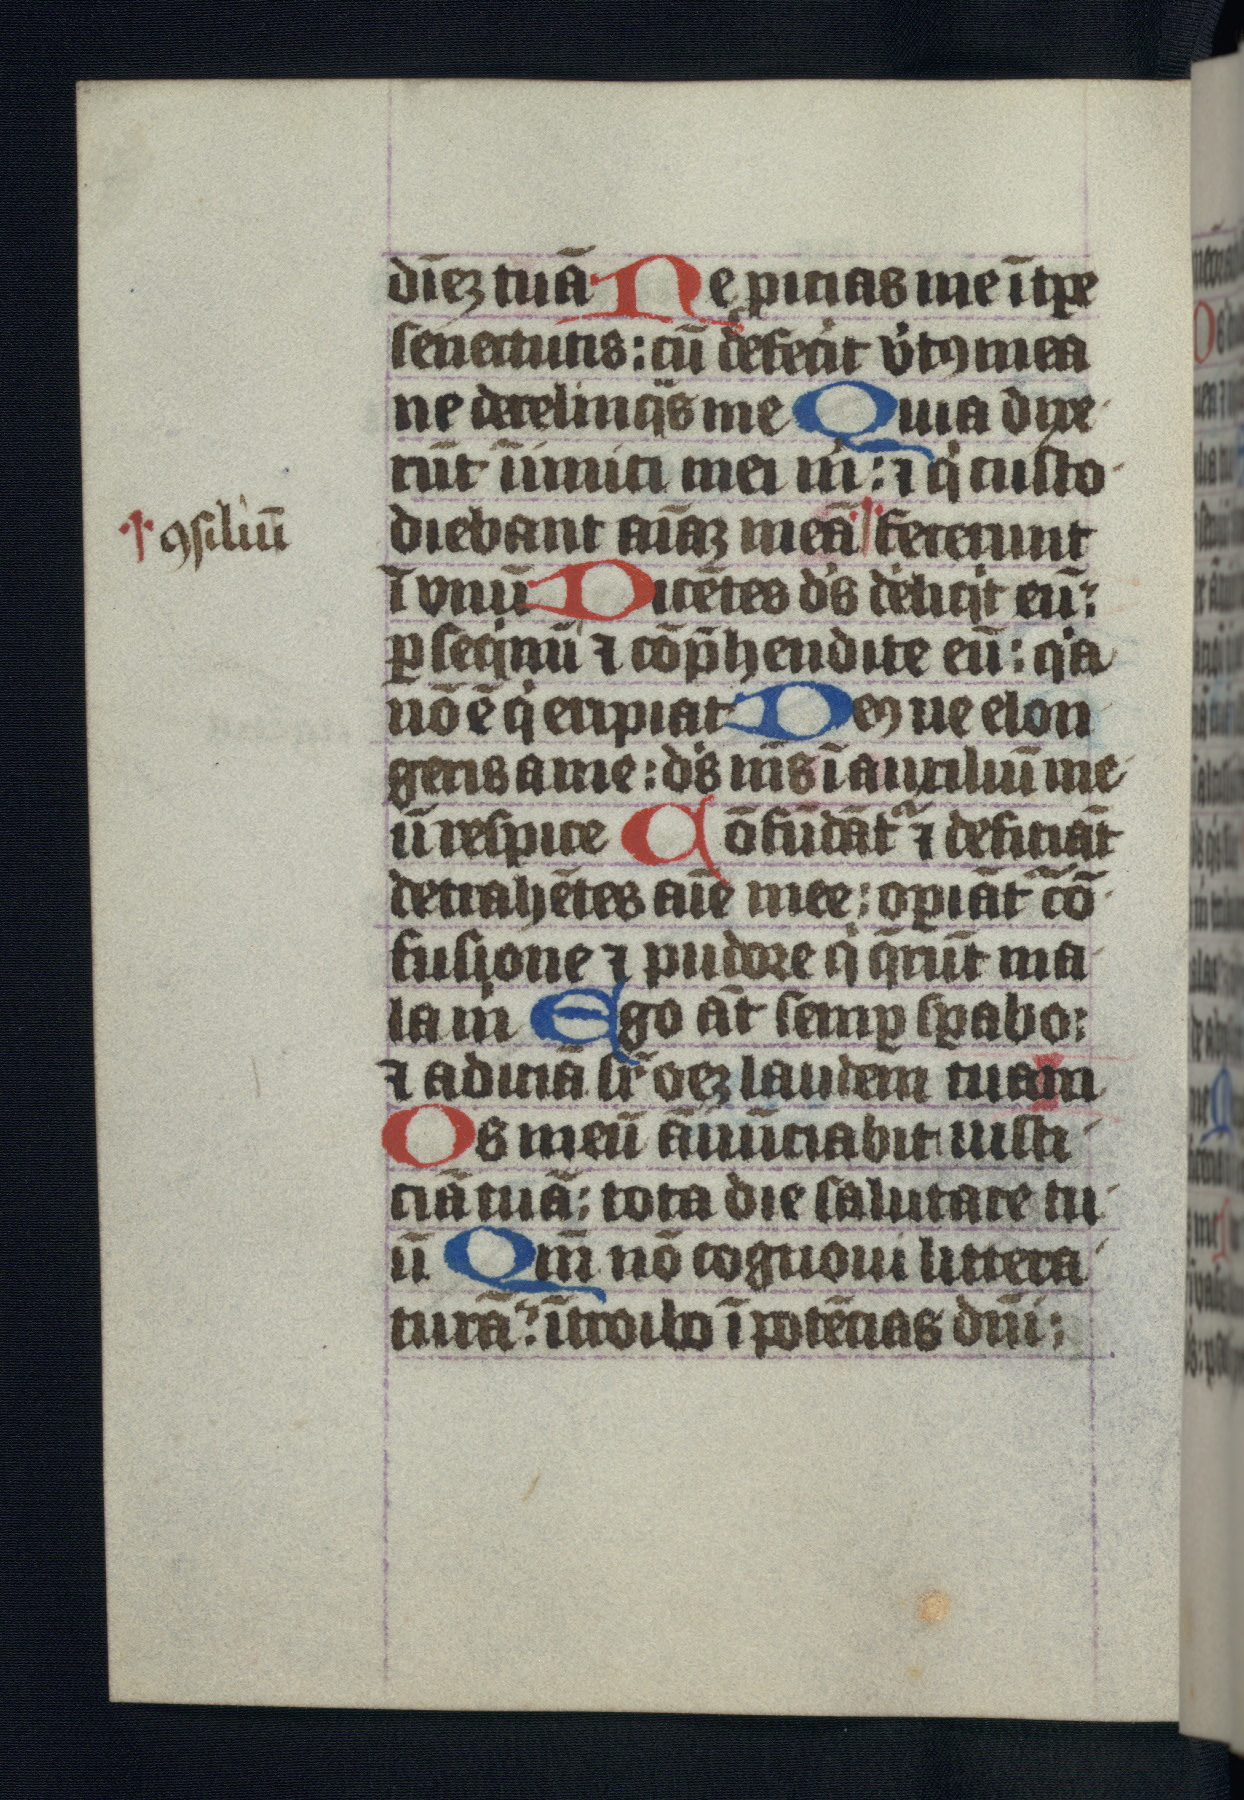 dīeꝫ tuā Ne ꝓicias me ī tꝑe
senectutis : cū defecit v͛tꝰ mea
ne derelinqͥs me Quia dixe-
rūt īimici mei m̄ : ⁊ qͥ custo-
diebant aīaꝫ meā fecerunt
ꝯsiliū
ī vnū Dicētes dͣs deliqͥt eū :
ꝑseqͥmī ⁊ cōp̄hendite eū : qͥa
nō ē qͥ eripiat Deꝰ ne elon
geris a me : dͣs mͣs ī auxiliū me
ū respice Cōfūdāt᷑ ⁊ deficiāt
detrahētes aīe mee : oꝑiāt᷑ cō-
fusione ⁊ pudore qͥ q̄rūt ma-
la m̄ Ego āt semꝑ sꝑabo :
⁊ adiciā sr̄ oēꝫ laudem tuam
Os meū ānūciabit iusti-
ciā tuā : tota die salutare tu-
ū Qm̄ nō cognoui littera-
turā : ītroibo ī potēcias dn̄i :